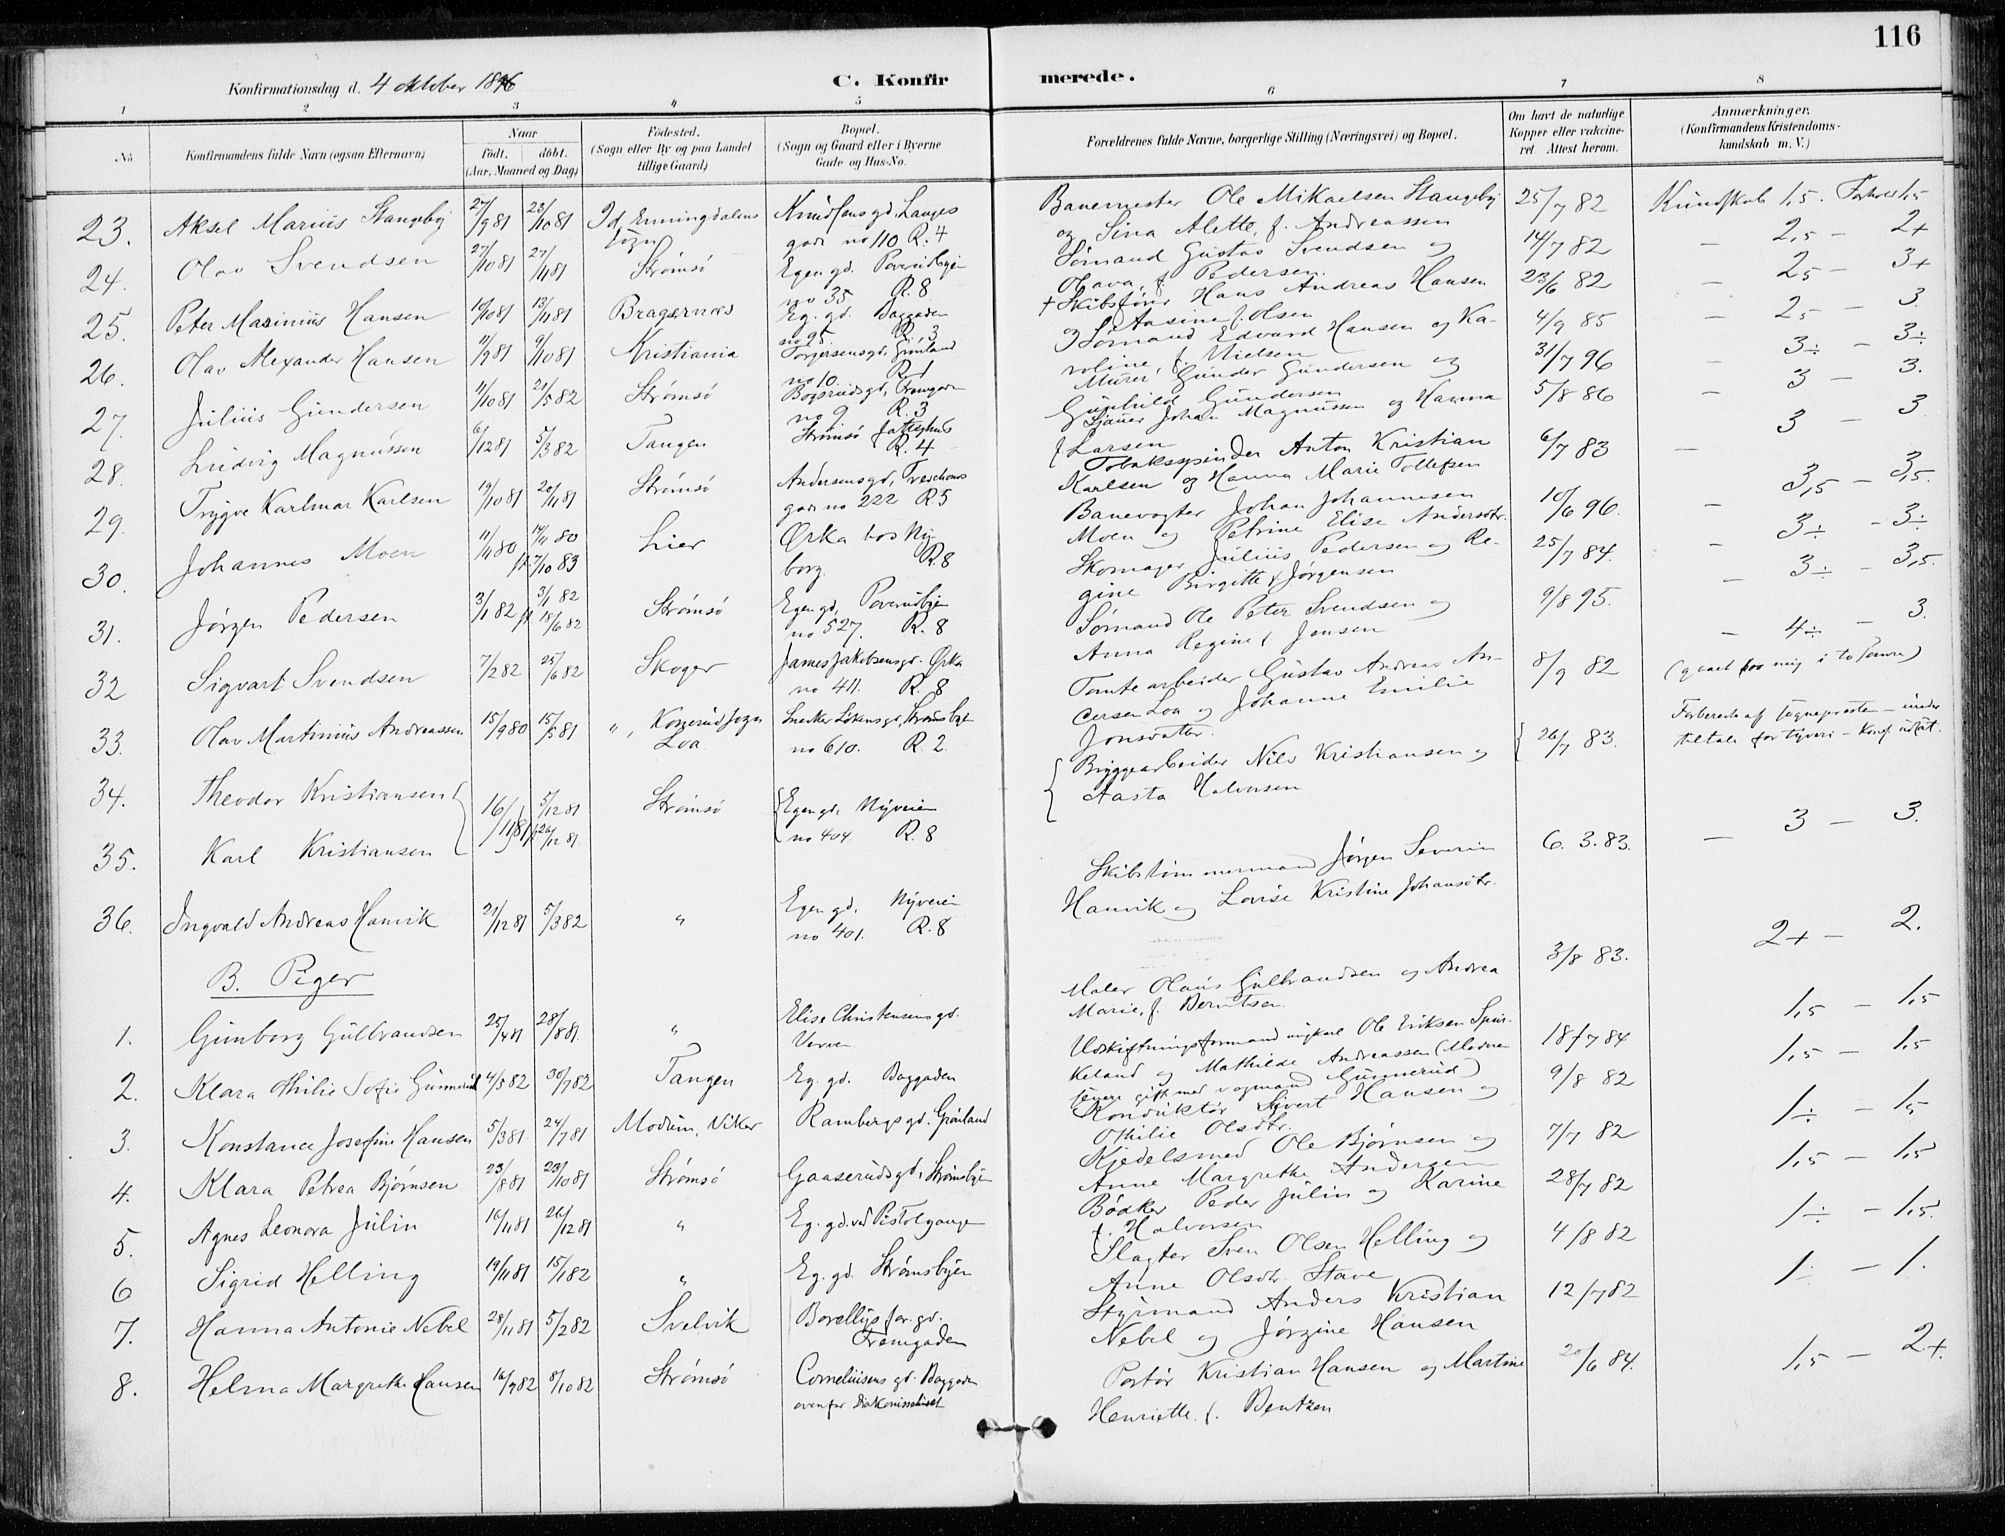 116
Konfirmationsdag d. 4 oktober 1896
C. Konfirmerede.
1 2 3 4 5 6 7 8
No.
Konfirmandens fulde Navn (ogsaa Efternavn)
Naar
født. døbt.
(Aar, Maaned og Dag)
Fødested.
(Sogn eller By og paa Landet
tillige Gaard)
Bopæl.
(Sogn og Gaard eller i Byerne
Gade og Hus-No.
Forældrenes fulde Navne, borgerlige Stilling (Næringsvei) og Bopæl.
Om havt de naturlige
Kopper eller vakcine-
ret Attest herom.
Anmærkninger.
(Konfirmandens Kristendoms-
kundskab m. V.)
23. Aksel Marius Stangeby 27/9 81 23/10 81 Id, Enningdalens Sogn Knudsens gd, Langes
gade no 110 R. 4
Banemester Ole Mikaelsen Stangeby
og Sina Alette, f. Andreassen
25/7 82 Kundskab 1,5. Forhold 1,5
24. Olav Svendsen 27/10 81 27/11 81 Strømsø Egen gd. Poverudbyen
no 35 R. 8
Sømand Gustav Svendsen og
Olava, f. Pedersen.
14/7 82 – 2,5 – 2+
25. Peter Marinius Hansen 10/10 81 13/11 81 Bragernæs Eg. gd. Baggaden
no 95. R. 3
+ Skibsfører Hans Andreas Hansen
og Aasine f. Olsen
23/6 82 – 25 – 3+
26. Olav Alexander Hansen 11/9 81 9/10 81 Kristiania Torjersens gd, Grønland
no 10. R. 1
Sømand Edvard Hansen og Ka-
roline, f. Nielsen
4/9 85 – 25 – 3.
27. Julius Gundersen 11/10 81 21/5 82 Strømsø
no 9 R. 3
Murer Gunder Gundersen og
Gunhild Gundersen
31/7 96 – 3÷ – 3÷
28. Ludvig Magnussen 6/12 81 5/3 82 Tangen Strømsø Fattighus
R. 4
Sjauer Johan Magnussen og Hanna
f Larsen
5/8 86 – 3 – 3.
29. Trygve Karlmar Karlsen 19/10 81 20/11 81 Strømsø Andersens gd, Treschows
gade no 222 R. 5
Tobakspinder Anton Kristian
Karlsen og Hanna Marie Tollefsen
6/7 83 – 3 – 3.
30. Johannes Moen 11/11 80 14/11 80 7/10 83 Lier Ørka hos Ny-
borg R. 8
Banevogter Johan Johannesen
Moen og Petrine Elise Andersdtr.
10/6 96. – 3,5 – 3,5.
31. Jørgen Pedersen 3/1 82 3/1 82 18/6 82 Strømsø Egen gd, Poverudbyen
no 527. R. 8
Skomager Julius Pedersen og Re-
gine Birgitte f Jørgensen
25/7 84. – 3÷ – 3÷
32 Sigvart Svendsen 7/2 82 25/6 82 Skoger James Jakobsens gd. Ørka
no 411. R. 8
Sømand Ole Peter Svendsen og
Anna Regine f Jensen
9/8 95. – 3÷ – 3,5.
33. Olav Martinius Andreassen 15/9 80 15/5 81 ", Konnerud sogn
Loa Snecker Løkens gd, Strømsbyen
no 610. R. 2.
Tomtearbeider Gustav Andreas An-
dersen Loa og Johanne Emilie
Jonsdatter.
8/9 82 – 4÷ – 3.
(gaaet for mig i to somre)
34. Theodor Kristiansen
35. Karl Kristiansen
16/11 81 5/12 81 26/12 81 Strømsø Egen gd, Nyveien
no 404. R. 8
Bryggearbeider Nils Kristiansen og
Aasta Halvorsen
26/7 83. Forberedt af sognepresten – under
tiltale for tyveri – Konf. udsat.
36. Ingvald Andreas Hamvik 21/12 81 5/3 82 " Egen gd, Nyveien
no 401. R. 8
Skibstømmermand Jørgen Severin
Hamvik og Lovise Kristine Johansdtr.
6. 3. 83. – 3 – 3.
B. Piger
1. Gunborg Gulbrandsen 25/4 81 28/8 81 " Elise Christensens gd.
Verven
Maler Olaus Gulbrandsen og Andrea
Marie, f. Berntsen.
3/8 83. 2+ – 2.
2. Klara Othilie Sofie Gunnerud 4/5 82 30/7 82 Tangen Eg. gd. Baggaden
Udskiftningsformand ungkarl Ole Eriksen
og Mathilde Andreassen (Moderen
senere gift med vognmand Gunnerud)
18/7 84 1,5 – 1,5
3. Konstance Josefine Hansen 5/3 81. 24/7 81 Modum, Viker Rambergs gd. Grønland
Konduktør Sivert Hansen og
Othilie Olsdtr.
9/8 82 1,5 – 1,5
4. Klara Petrea Bjørnsen 23/8 81 23/10 81 Strømsø Gaaseruds gd, Strømsbyen
Kjedelsmed Ole Bjørnsen og
Anne Margrethe Andersen
7/7 82 1÷ – 1,5
5. Agnes Leonora Julin 16/11 81 26/12 81 " Eg. gd. ved Pistolgangen
Bødker Peder Julin og Karine
f. Halvorsen
28/7 82 1,5 – 1,5
6 Sigrid Helling 19/11 81 15/1 82 " Eg. gd. Strømsbyen
Slagter Sven Olsen Helling og
Anne Olsdtr. Stave
4/8 82 1÷ – 1,5.
7. Hanna Antonie Nebel 28/11 81 5/2 82 Svelvik
Fremgaden
Styrmand Anders Kristian
Nebel og Jørgine Hansen
12/7 82 1÷ – 1.
8. Helma Margrethe Hansen 16/7 82 8/10 82 Strømsø Corneliusens gd. Baggaden
ovenfor Diakonissehuset
Portør Kristian Hansen og Martine
Henriette f. Bentzen
20/6 84. 1,5 – 2+.